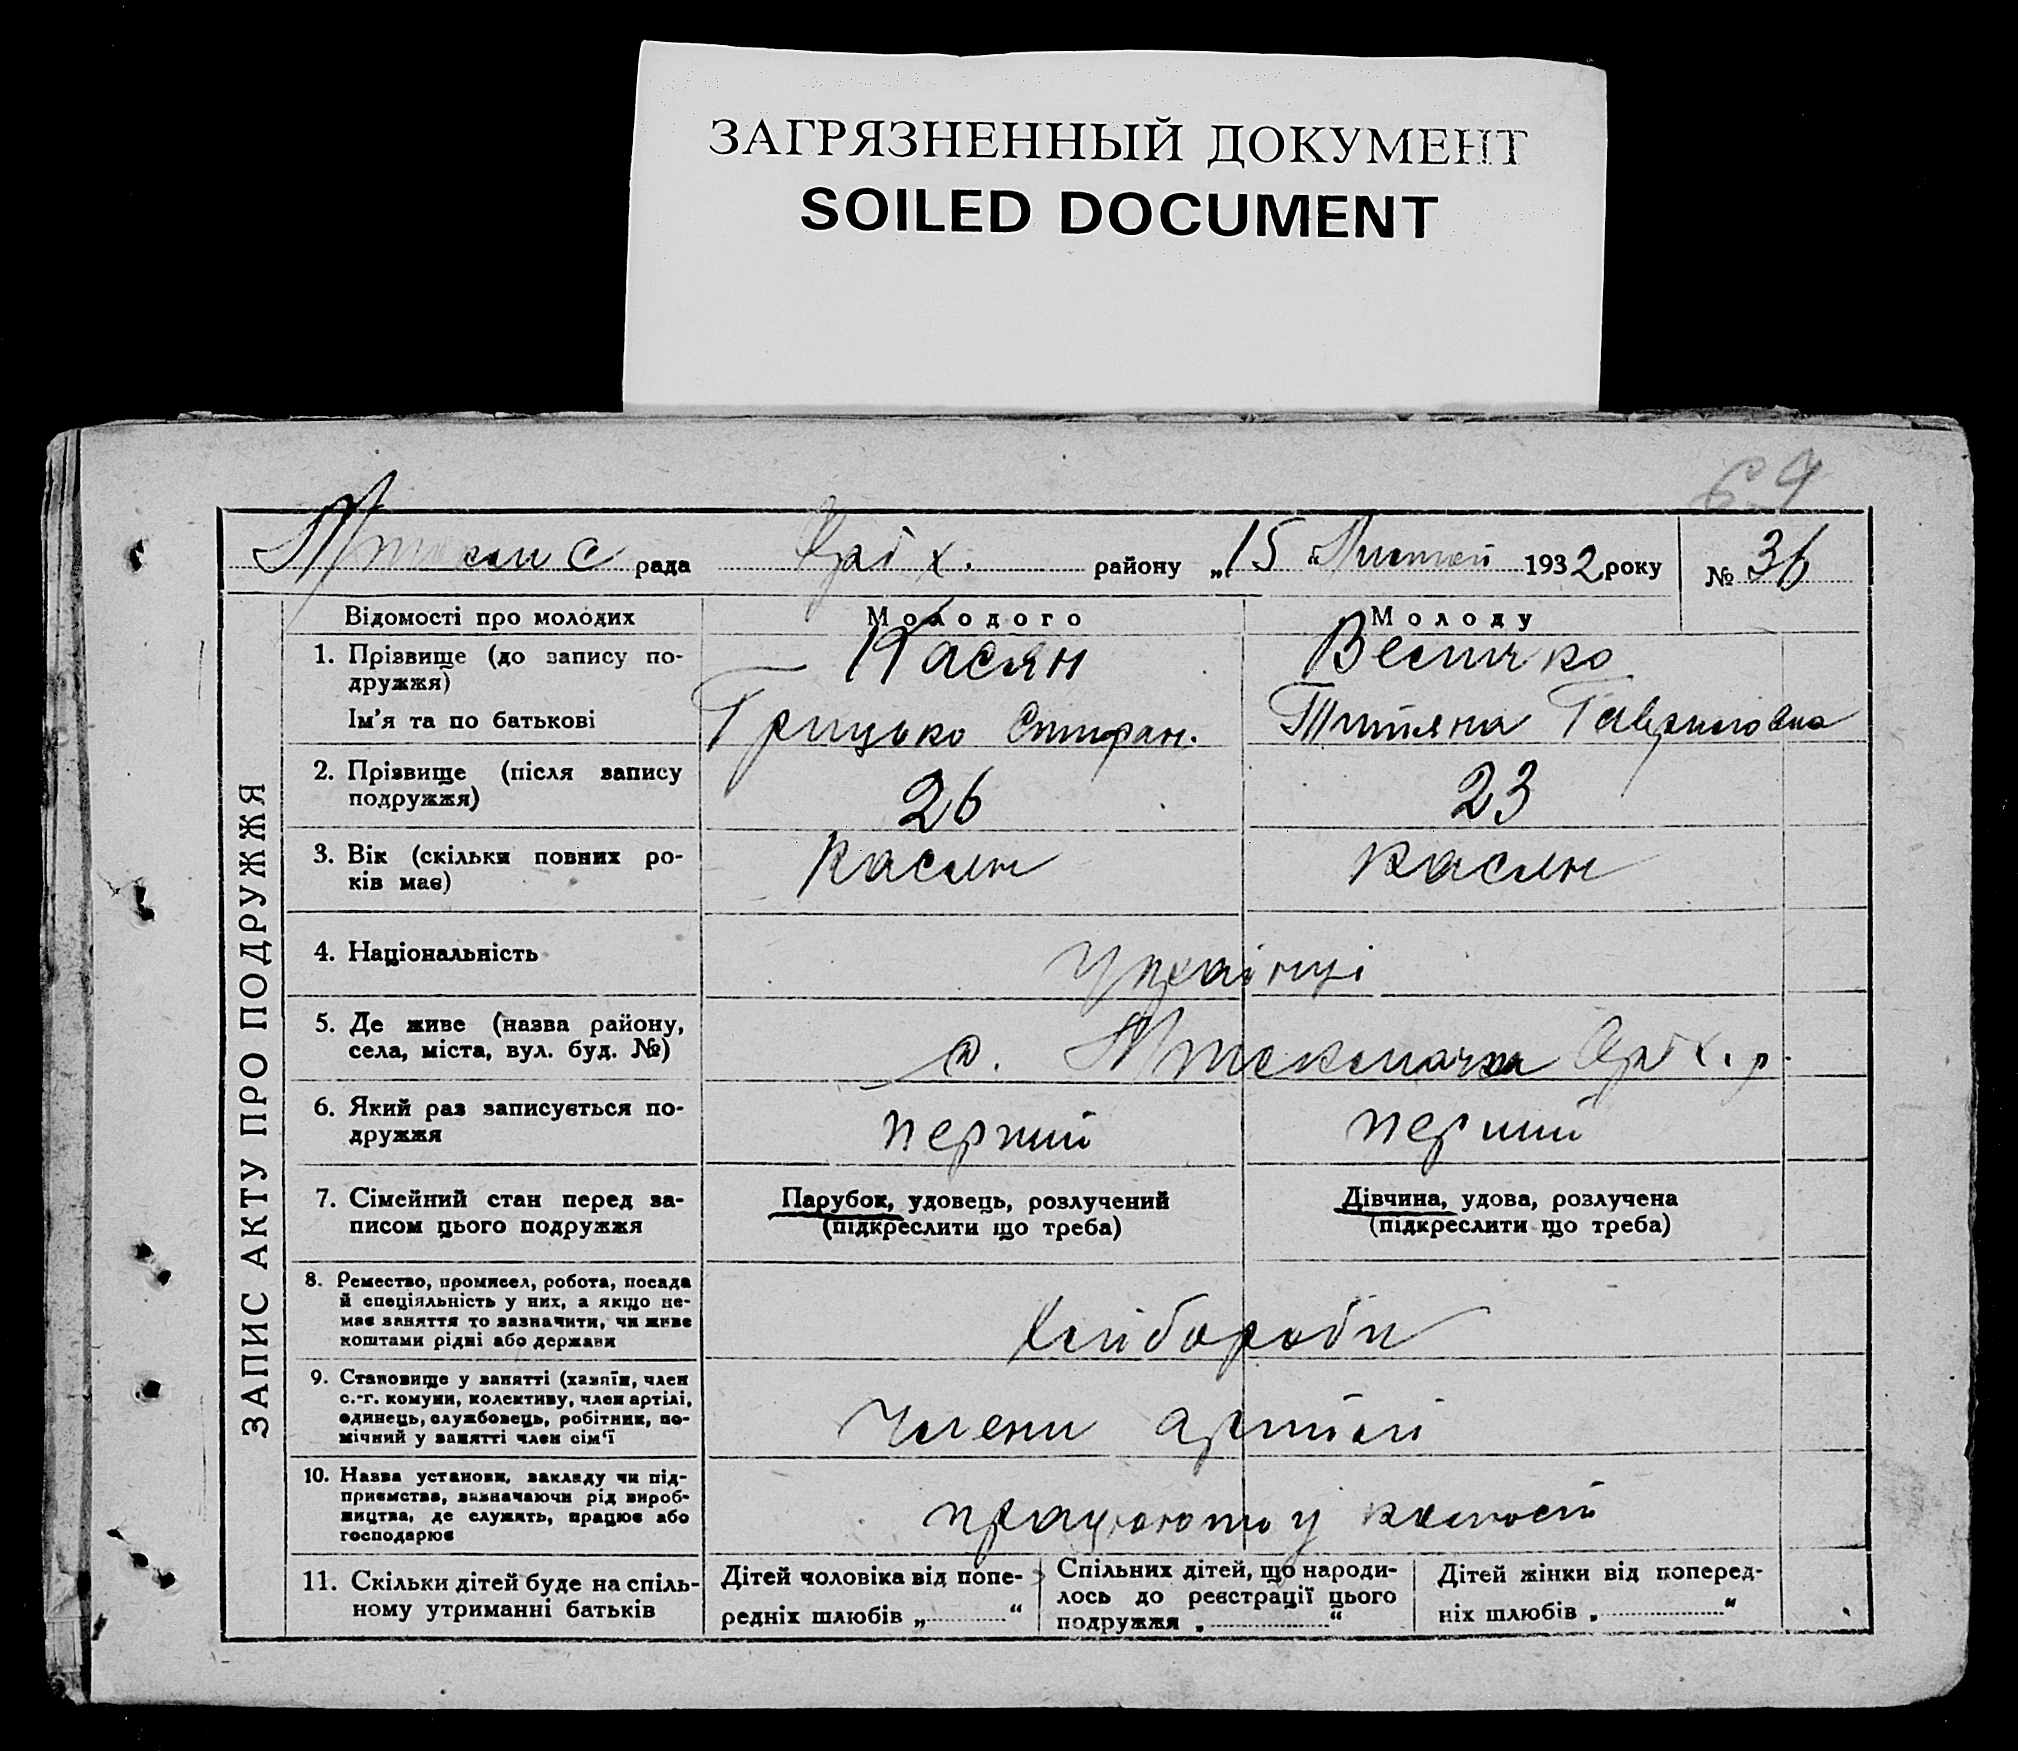 ЗАГРЯЗНЕННЫЙ ДОКУМЕНТ
SOILED DOCUMENT
рада
району „15“ 1932 року
№ 36
ЗАПИС АКТУ ПРО ПОДРУЖЖЯ
Відомості про молодих
Молодого
Молоду
1. Прізвище (до запису по-
дружжя)
Касян
Величко
Ім'я та по батькові
Грицько Стифан.
Титяна Гавриловна
2. Прізвище (після запису
подружжя)
26
23
3. Вік (скільки повних ро-
ків має)
Касян
Касян
4. Національність
Українці
5. Де живе (назва району,
села, міста, вул. буд. №)
с. р.
6. Який раз записується по-
дружжя
перший
перший
7. Сімейний стан перед за-
писом цього подружжя
Парубок, удовець, розлучений
(підкреслити що треба)
Дівчина, удова, розлучена
(підкреслити що треба)
8. Ремество, промисел, робота, посада
й спеціяльність у них, а якщо не-
має заняття то зазначити, чи живе
коштами рідні або держави
Хлібороби
9. Становище у занятті (хазяїн, член
с.-г. комуни, колективу, член артілі,
одинець, службовець, робітник, по-
мічний у занятті член сім'ї
Члени артілі
10. Назва установи, закладу чи під-
приємства, зазначаючи рід вироб-
ництва, де служить, працює або
господарює
працюють у колгоспі
11. Скільки дітей буде на спіль-
ному утриманні батьків
Дітей чоловіка від попе-
редніх шлюбів „ “
Спільних дітей, що народи-
лось до реєстрації цього
подружжя „ “
Дітей жінки від поперед-
ніх шлюбів „ “